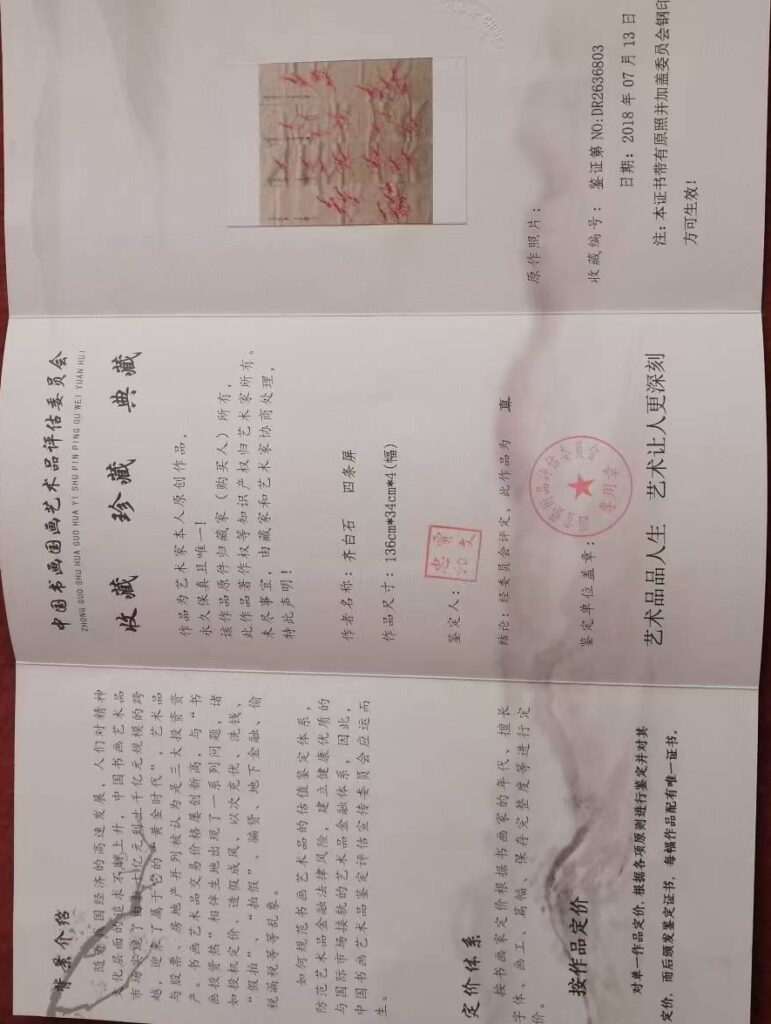 背景介绍
随着我国经济的高速发展，人们对精神
文化层面的追求不断上升，中国书画艺术品
市场实现了由数十亿元到上千亿元规模的跨
越，迎来了属于它的“黄金时代”，艺术品
与股票、房地产并列被认为是三大投资资
产。书画艺术品交易价格屡创新高，与“书
画投资热”相伴生地出现了一系列问题，诸
如投标定价、造假成风、以次充优、洗钱、
“假拍”、“拍假”、骗贷、地下金融、偷
税漏税等等乱象。
如何规范书画艺术品的估值鉴定体系，
防范艺术品金融法律风险，建立健康优质的
与国际市场接轨的艺术品金融体系，因此，
中国书画艺术品鉴定评估宣传委员会应运而
生。
定价体系
按书画家定价根据书画家的年代、擅长
字体、画工、篇幅、保存完整度等进行定
价。
按作品定价
对单一作品定价，根据各项原则进行鉴定并对其
定价，而后颁发鉴定证书，每幅作品配有唯一证书。
中国书画国画艺术品评估委员会
ZHONG GUO SHU HUA GUO HUA YI SHU PIN PING GU WEI YUAN HUI
收藏 珍藏 典藏
作品为艺术家本人原创作品，
永久保真且唯一！
该作品原件归藏家（购买人）所有，
此作品著作权等知识产权归艺术家所有。
未尽事宜，由藏家和艺术家协商处理，
特此声明！
作者名称：齐白石 四条屏
作品尺寸：136cm*34cm*4(幅)
鉴定人：
结论：经委员会评定，此作品为 真
鉴定单位盖章：
专用章
艺术品品人生 艺术让人更深刻
原作照片：
收藏编号： 鉴证第 NO:DR2636803
日期：2018 年 07 月 13 日
注：本证书带有原照并加盖委员会钢印
方可生效！